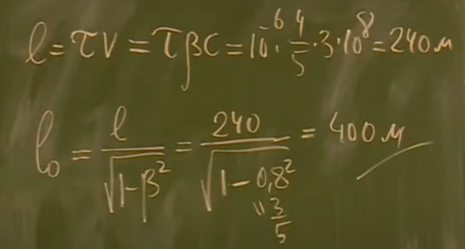 l = τV = τβC = 10⁻⁶ · 4/5 · 3·10⁸ = 240 м
l₀ = l/√(1-β²) = 240/√(1-0,8²) = 400 м
" 3/5